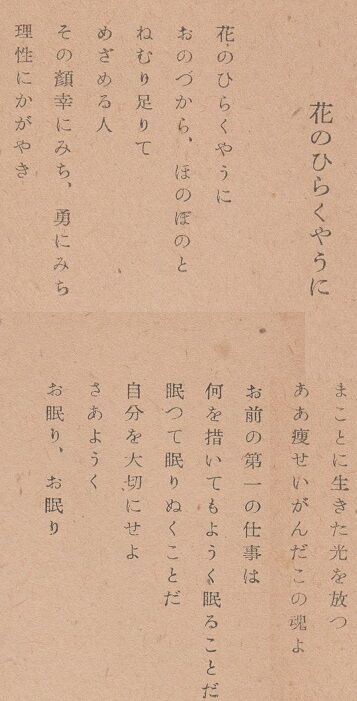 花のひらくやうに
花のひらくやうに
おのづから、ほのぼのと
ねむり足りて
めざめる人
その顔幸にみち、勇にみち
理性にかがやき
まことに生きた光を放つ
ああ痩せいがんだこの魂よ
お前の第一の仕事は
何を措いてもようく眠ることだ
眠つて眠りぬくことだ
自分を大切にせよ
さあようく
お眠り、お眠り